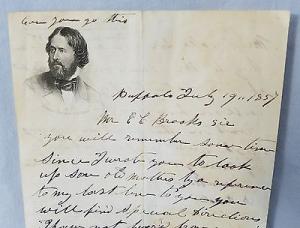 you go this
Buffalo July 19.. 1857
Mr E C Brooks sir
you will remember some time
Since I wrote you to look
up some old matters by a reference
to my last letter to you you
will find Special directions